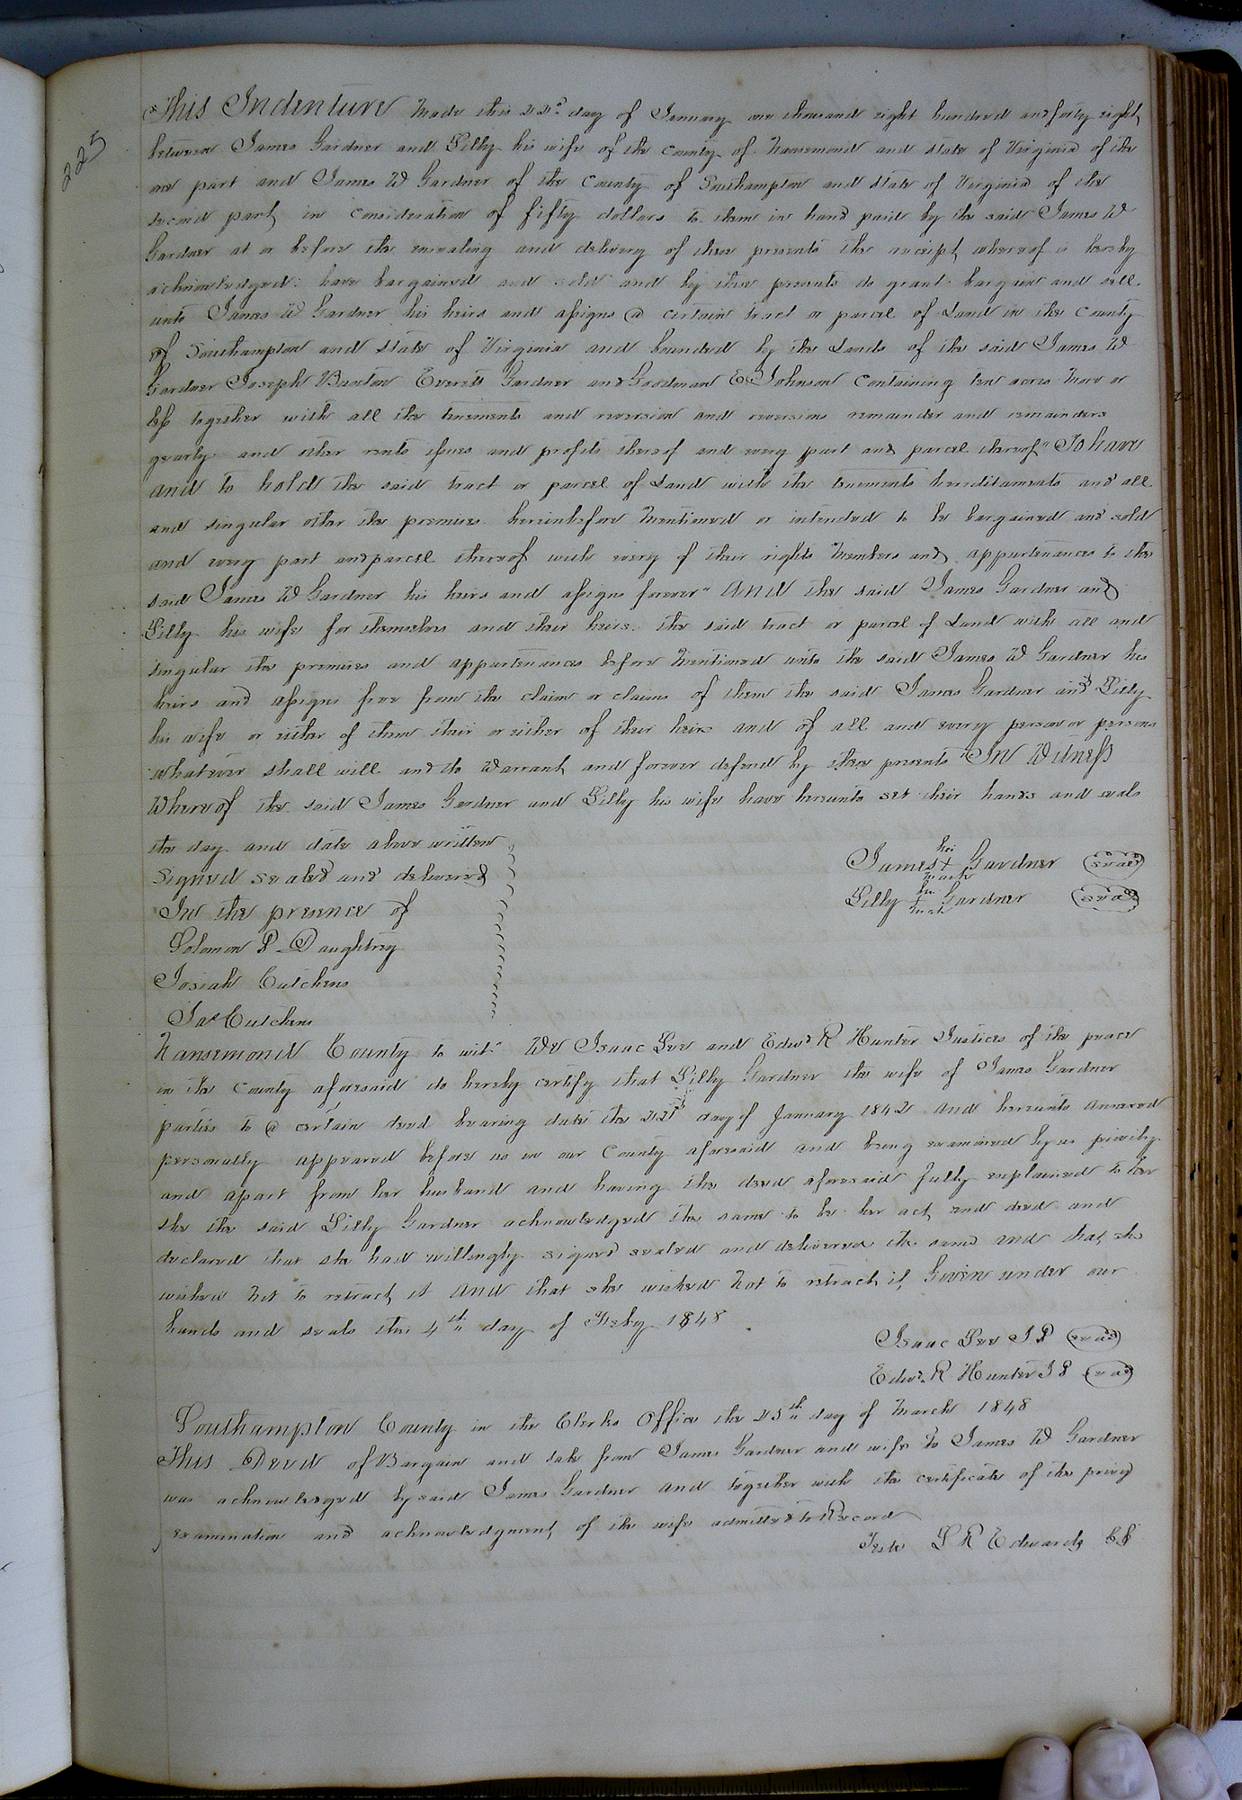 225
This Indenture made this 22d day of January one thousand eight hundred and forty eight
between James Gardner and Lilly his wife of the County of Nansemond and State of Virginia of the
one part and James W Gardner of the County of Southampton and State of Virginia of the
second part in consideration of fifty dollars to them in hand paid by the said James W
Gardner at or before the ensealing and delivery of these presents the receipt whereof is hereby
acknowledged: have bargained and sold and by these presents do grant bargain and sell
unto James W Gardner his heirs and assigns a certain tract or parcel of Land in the County
of Southampton and State of Virginia and bounded by the Lands of the said James W
Gardner Joseph Barton Everett Gardner and Goodman E Johnson containing ten acres more or
less together with all the tenements and reversion and reversions remainder and remainders
yearly and other rents issues and profits thereof and every part and parcel thereof" To have
and to hold the said tract or parcel of Land with the tenements hereditaments and all
and singular other the premises hereinbefore mentioned or intended to be bargained and sold
and every part and parcel thereof with every of their rights members and appurtenances to the
said James W Gardner his heirs and assigns forever" And the said James Gardner and
Lilly his wife for themselves and their heirs the said tract or parcel of Land with all and
singular the premises and appurtenances before mentioned unto the said James W Gardner his
heirs and assigns free from the claim or claims of them the said James Gardner and Lilly
his wife or either of them their or either of their heirs and of all and every person or persons
whatever shall will and do warrant and forever defend by these presents "In Witness
Whereof the said James Gardner and Lilly his wife have hereunto set their hands and seals
the day and date above written
Signed sealed and delivered
In the presence of
Solomon P Daughtrey
Josiah Cutchins
Jas Cutchins
his
James + Gardner (seal)
mark
her
Lilly + Gardner (seal)
mark
Nansemond County to wit: We Isaac Lee and Edwd R Hunter Justices of the peace
in the County aforesaid do hereby certify that Lilly Gardner the wife of James Gardner
parties to a certain deed bearing date the 22d day of January 1842 and hereunto annexed
personally appeared before us in our County aforesaid and being examined by us privily
and apart from her husband and having the deed aforesaid fully explained to her
she the said Lilly Gardner acknowledged the same to be her act and deed and
declared that she had willingly signed sealed and delivered the same and that she
wished not to retract it and that she wished not to retract it Given under our
hands and seals this 4th day of Feby 1848
Isaac Lee J P (seal)
Edwd. R Hunter J P (seal)
Southampton County in the Clerks Office the 25th day of March 1848
This Deed of Bargain and Sale from James Gardner and wife to James W Gardner
was acknowledged by said James Gardner and together with the certificate of the privy
examination and acknowledgment of the wife admitted to Record
Teste L R Edwards CC